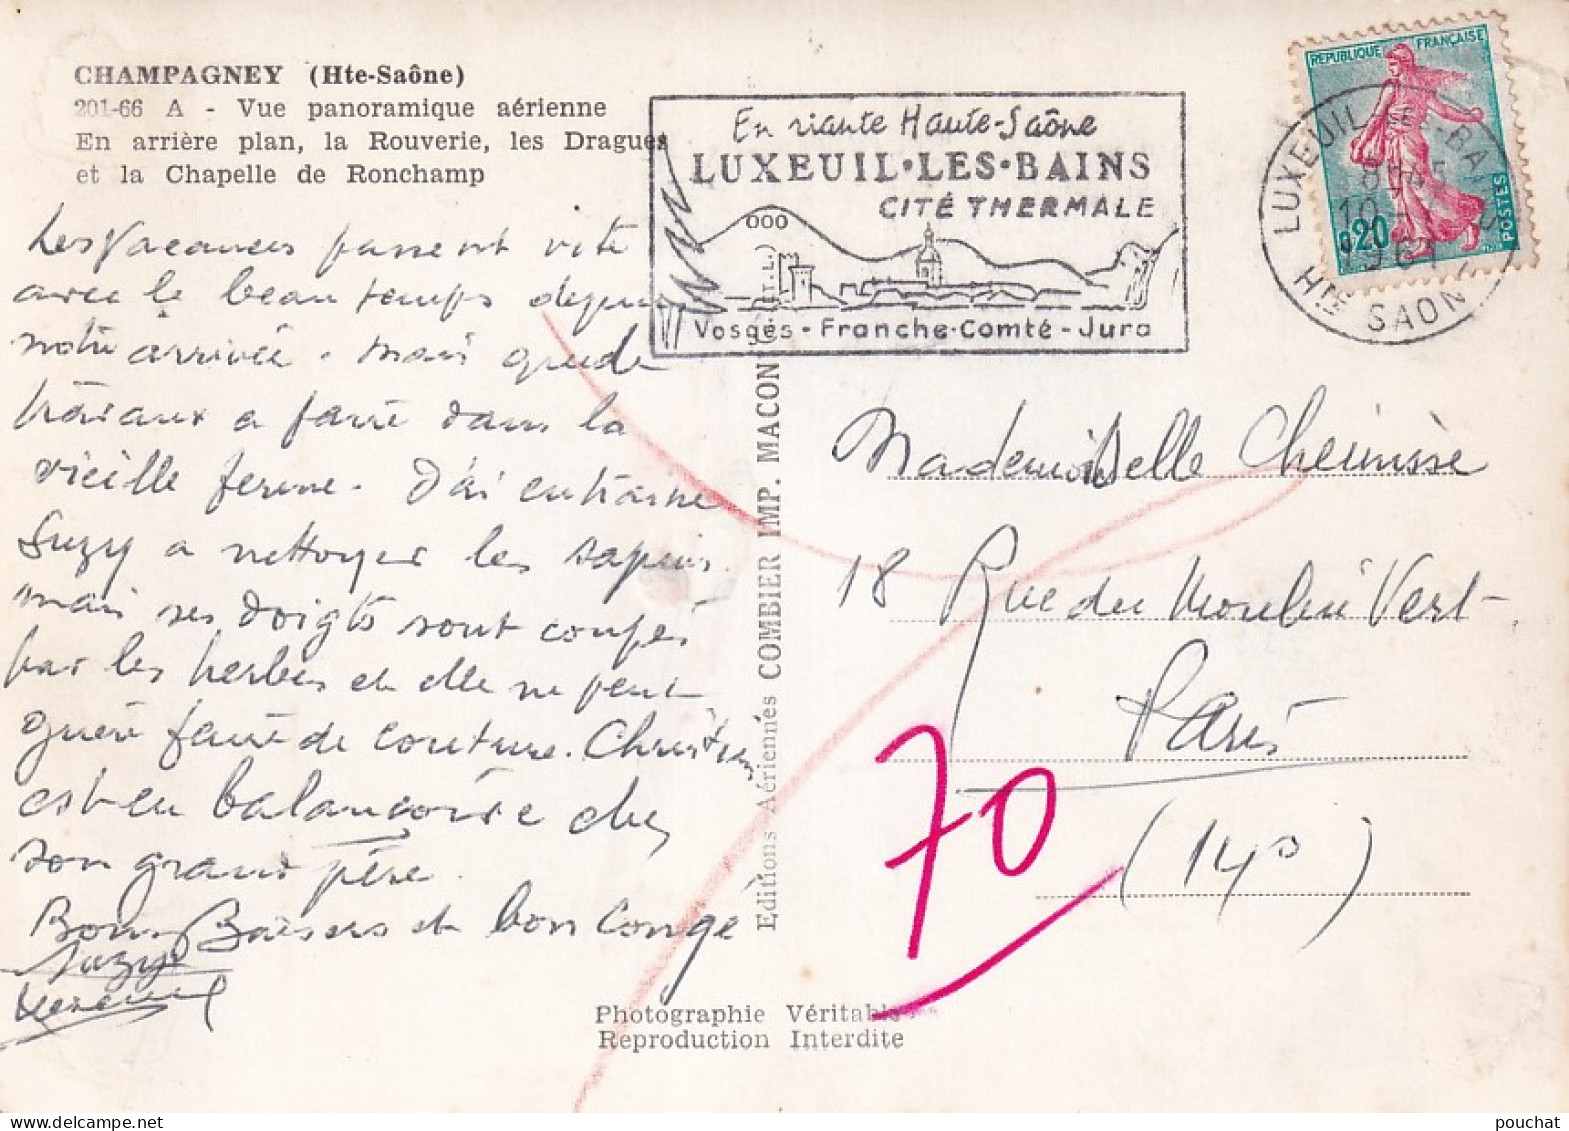 CHAMPAGNEY (Hte-Saône)
201-66 A - Vue panoramique aérienne
En arrière plan, la Rouverie, les Dragues
et la Chapelle de Ronchamp
Les Vacances passent vite
avec le beau temps depuis
notre arrivée. Mais que de
travaux a faire dans la
vieille ferme. J'ai entrainé
Suzy a nettoyer les sapins
mais ses doigts sont coupés
par les herbes et elle ne peut
guère faire de couture. Christian
est en balançoire chez
son grand père.
Bons Baisers et bon Congé
Suzy
En riante Haute-Saône
LUXEUIL•LES•BAINS
CITÉ THERMALE
Vosges - Franche-Comté - Jura
REPUBLIQUE FRANÇAISE
0,20
POSTES
LUXEUIL LES BAINS
10
1961
HTE SAONE
Mademoiselle
18 Rue du Moulin Vert
Paris
(14e)
70
Editions Aériennes COMBIER IMP. MACON
Photographie Véritable
Reproduction Interdite
pouchat